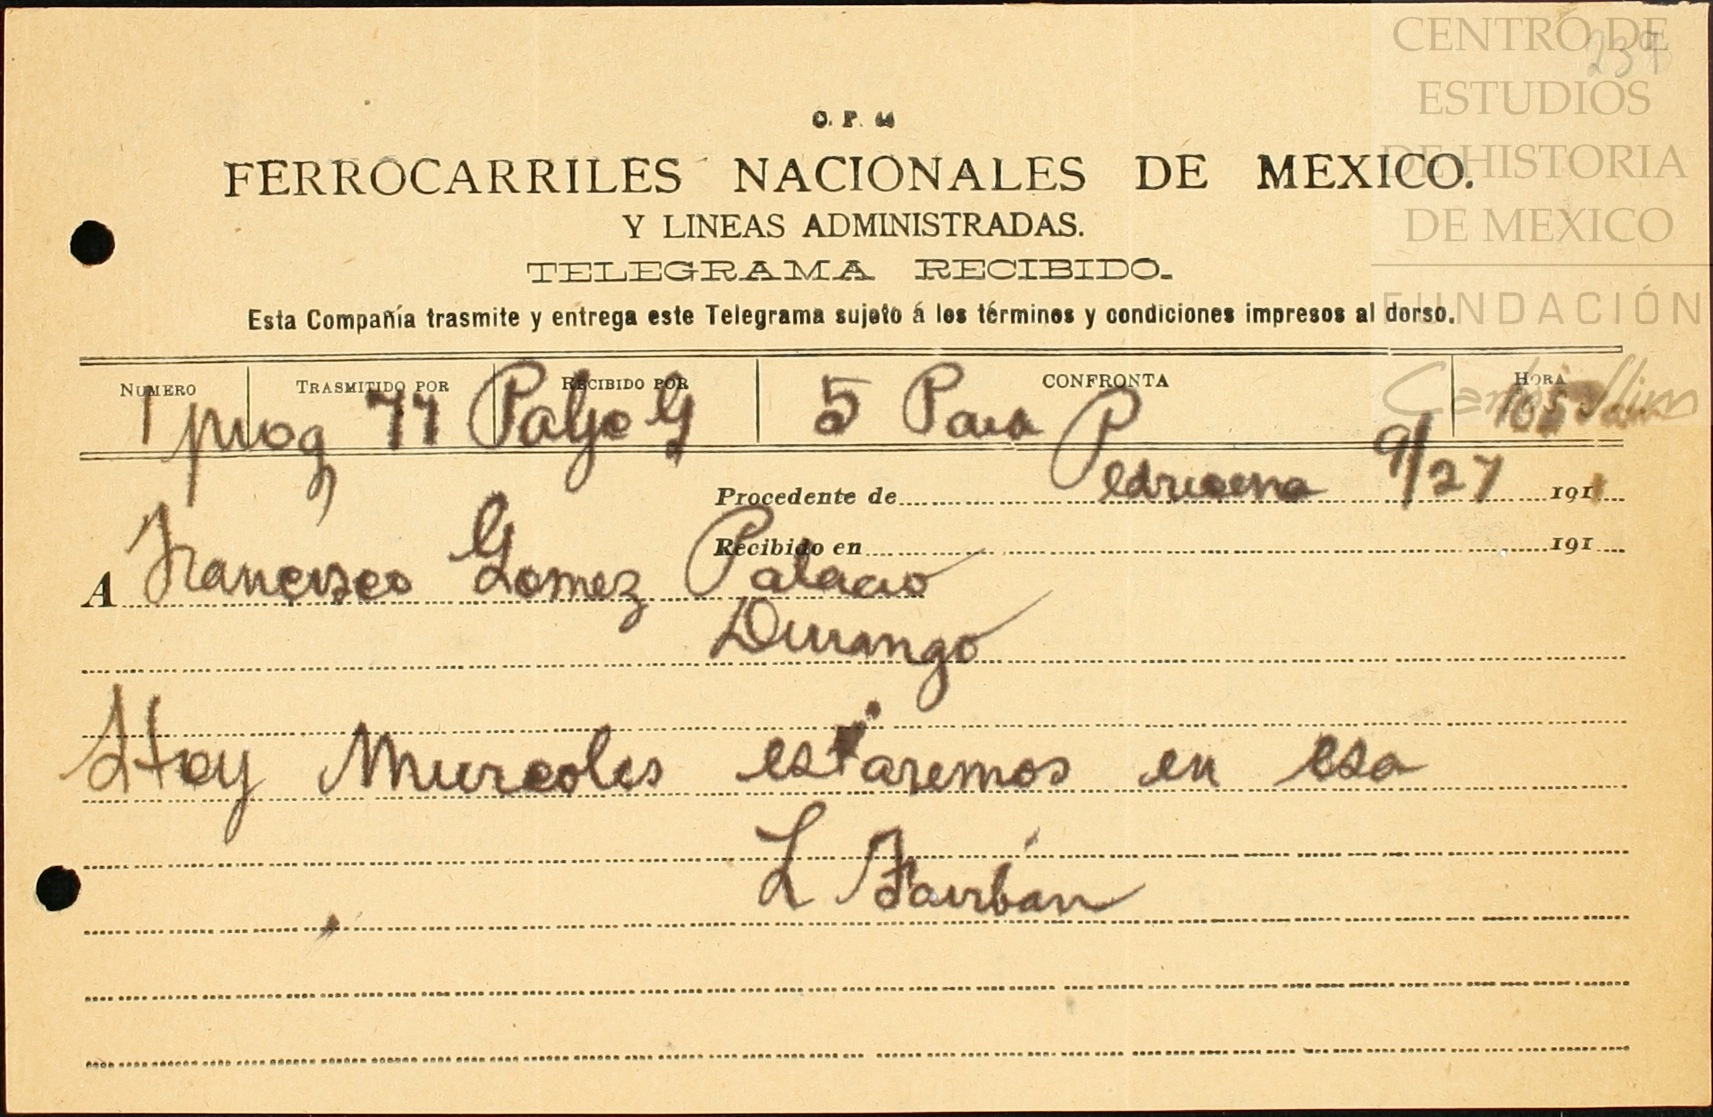 CENTRO DE
ESTUDIOS
DE HISTORIA
DE MEXICO
FUNDACIÓN
Carlos Slim
239
FERROCARRILES NACIONALES DE MEXICO.
Y LINEAS ADMINISTRADAS.
TELEGRAMA RECIBIDO.
Esta Compañía trasmite y entrega este Telegrama sujeto á los términos y condiciones impresos al dorso.
NUMERO TRASMITIDO POR RECIBIDO POR CONFRONTA HORA
1 77 G 5 Para
Procedente de 9/27 1911
Recibido en 191
A Francisco Gomez Palacio
Durango
Hoy Murcoles estaremos en esa
L Fairban